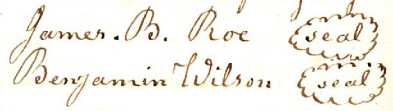 James. B. Roe seal
Benjamin Wilson seal